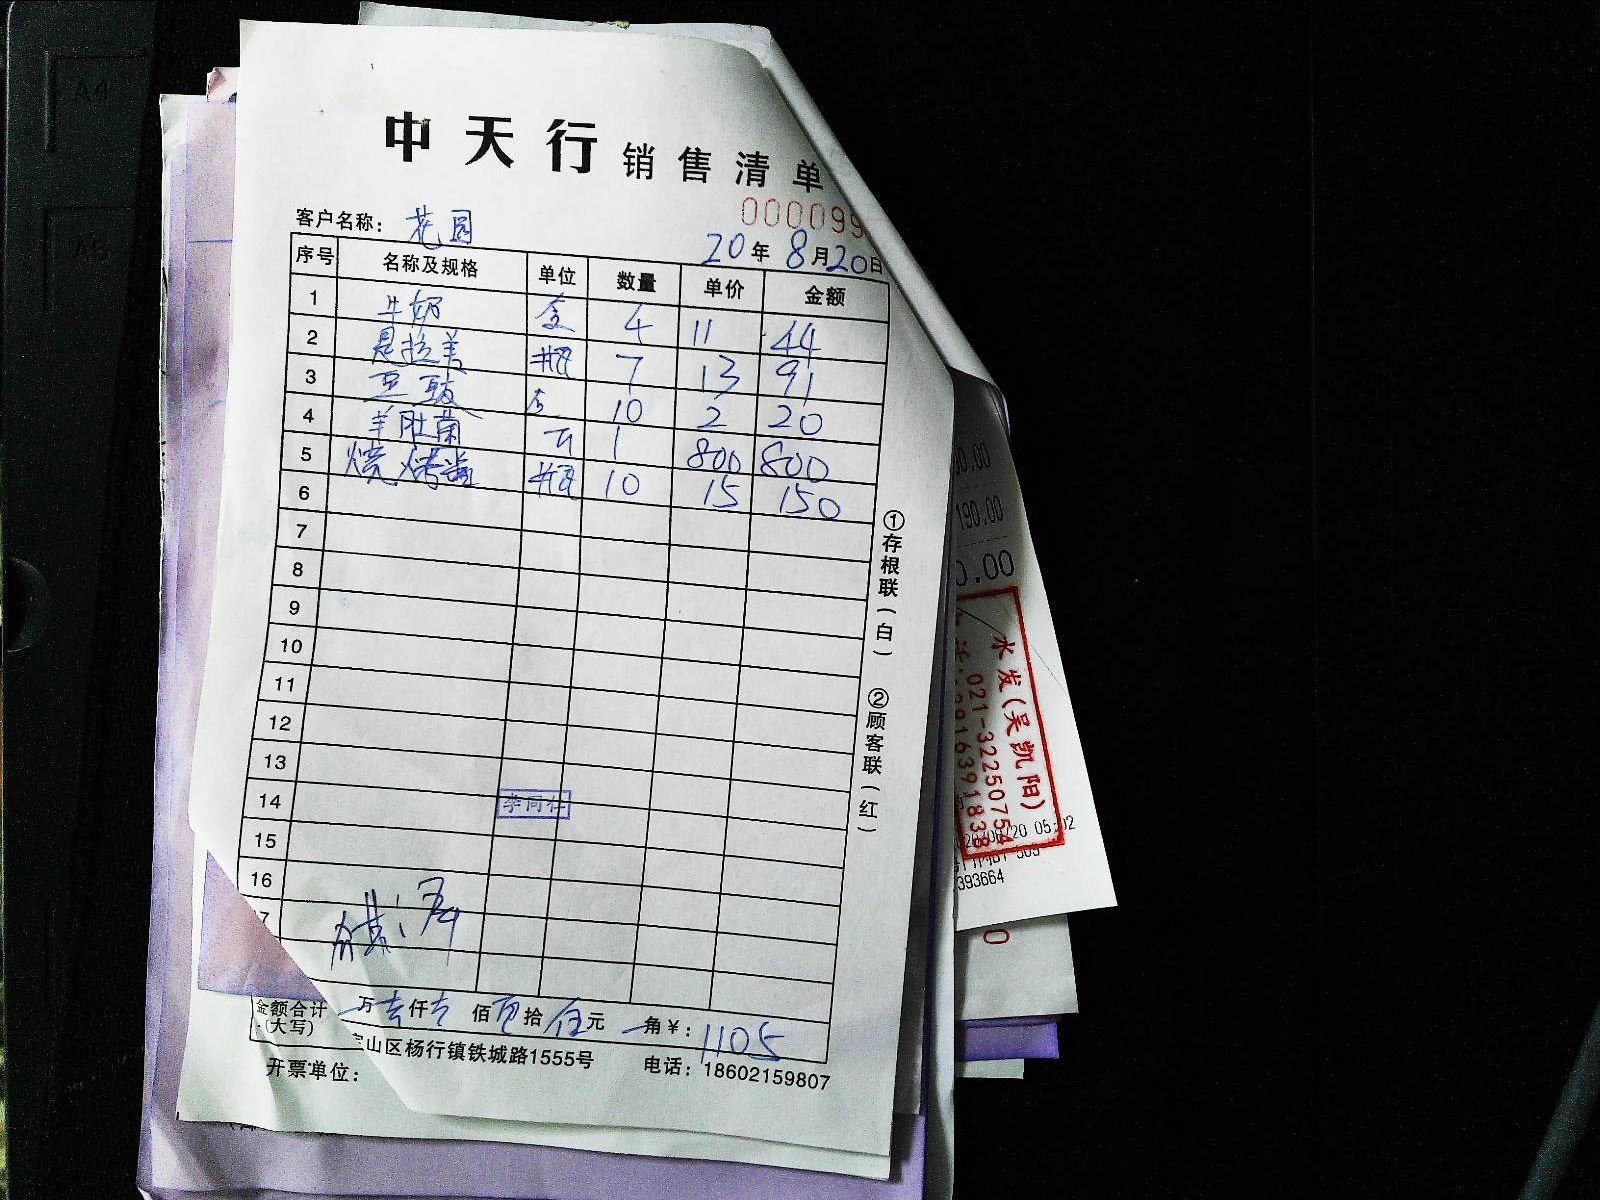 A4
A5
中天行 销售清单
000099
客户名称： 花园
20年8月20日
序号 名称及规格 单位 数量 单价 金额
1 牛奶 盒 4 11 44
2 是拉美 瓶 7 13 91
3 豆豉 10 2 20
4 羊肚菌 1 800 800
5 烧烤 瓶 10 15 150
6
7
8
9
10
11
12
13
14 李同仁
15
16
7
金额合计 万 仟 佰 拾 伍元 角 ¥：1105
(大写)
山区杨行镇铁城路1555号 电话：18602159807
开票单位：
①存根联(白) ②顾客联(红)
0.00
190.00
0.00
水发(吴凯阳)
021-32250754
20 05:02
393664
0